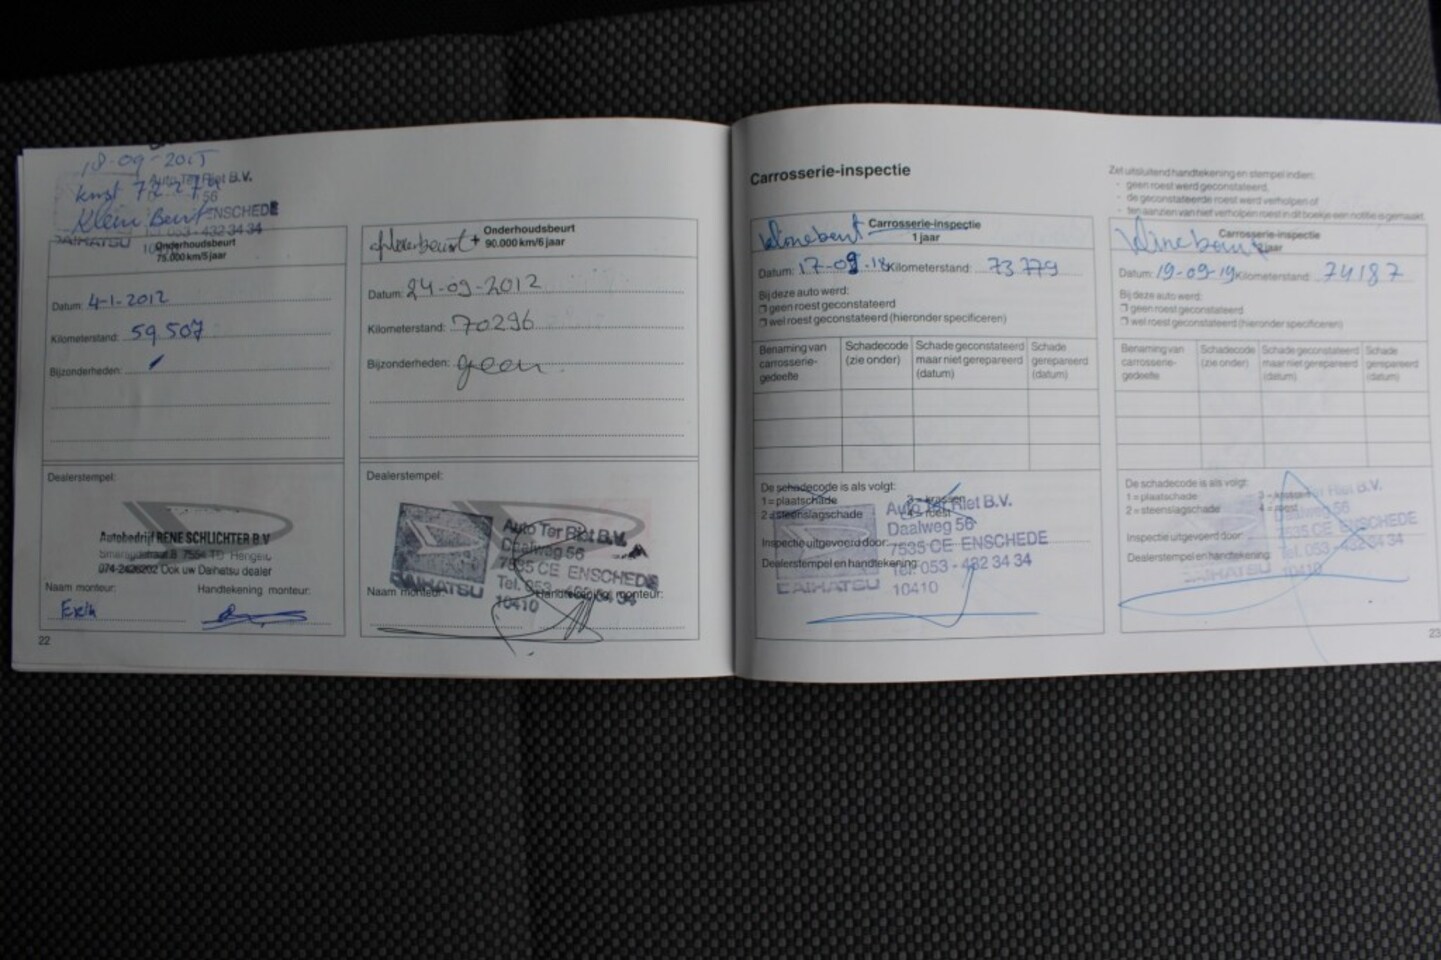 18-09-2015
Auto Ter Riet B.V.
kmst
56
Klein Beurt
ENSCHEDE
053 - 432 34 34
DAIHATSU
Onderhoudsbeurt
75.000 km/5 jaar
Datum: 4-1-2012
Kilometerstand: 59507
Bijzonderheden:
Dealerstempel:
Autobedrijf RENE SCHLICHTER B.V
7554 TD Hengelo
074-2426202 Ook uw Daihatsu dealer
Naam monteur:
Handtekening monteur:
Erik
22
+ Onderhoudsbeurt
90.000 km/6 jaar
Datum: 24-09-2012
Kilometerstand: 70296
Bijzonderheden: geen.
Dealerstempel:
Auto Ter Riet B.V.
Daalweg 56
7535 CE ENSCHEDE
Tel. 053 - 432 34 34
DAIHATSU
10410
Naam monteur:
Handtekening monteur:
Carrosserie-inspectie
Carrosserie-inspectie
1 jaar
Datum: 17-09-18 Kilometerstand: 73779
Bij deze auto werd:
geen roest geconstateerd
wel roest geconstateerd (hieronder specificeren)
Benaming van carrosserie-gedeelte
Schadecode (zie onder)
Schade geconstateerd maar niet gerepareerd (datum)
Schade gerepareerd (datum)
De schadecode is als volgt:
1 = plaatschade 3 = krassen
2 = steenslagschade 4 = roest
Inspectie uitgevoerd door:
Dealerstempel en handtekening:
Auto Ter Riet B.V.
Daalweg 56
7535 CE ENSCHEDE
Tel. 053 - 432 34 34
DAIHATSU
10410
Zet uitsluitend handtekening en stempel indien:
- geen roest werd geconstateerd,
- de geconstateerde roest werd verholpen of
- ten aanzien van niet verholpen roest in dit boekje een notitie is gemaakt.
Carrosserie-inspectie
jaar
Datum: 19-09-19 Kilometerstand: 74187
Bij deze auto werd:
geen roest geconstateerd
wel roest geconstateerd (hieronder specificeren)
Benaming van carrosserie-gedeelte
Schadecode (zie onder)
Schade geconstateerd maar niet gerepareerd (datum)
Schade gerepareerd (datum)
De schadecode is als volgt:
1 = plaatschade 3 = krassen
2 = steenslagschade 4 = roest
Inspectie uitgevoerd door:
Dealerstempel en handtekening:
Ter Riet B.V.
Daalweg 56
7535 CE ENSCHEDE
Tel. 053 - 432 34 34
DAIHATSU
10410
23